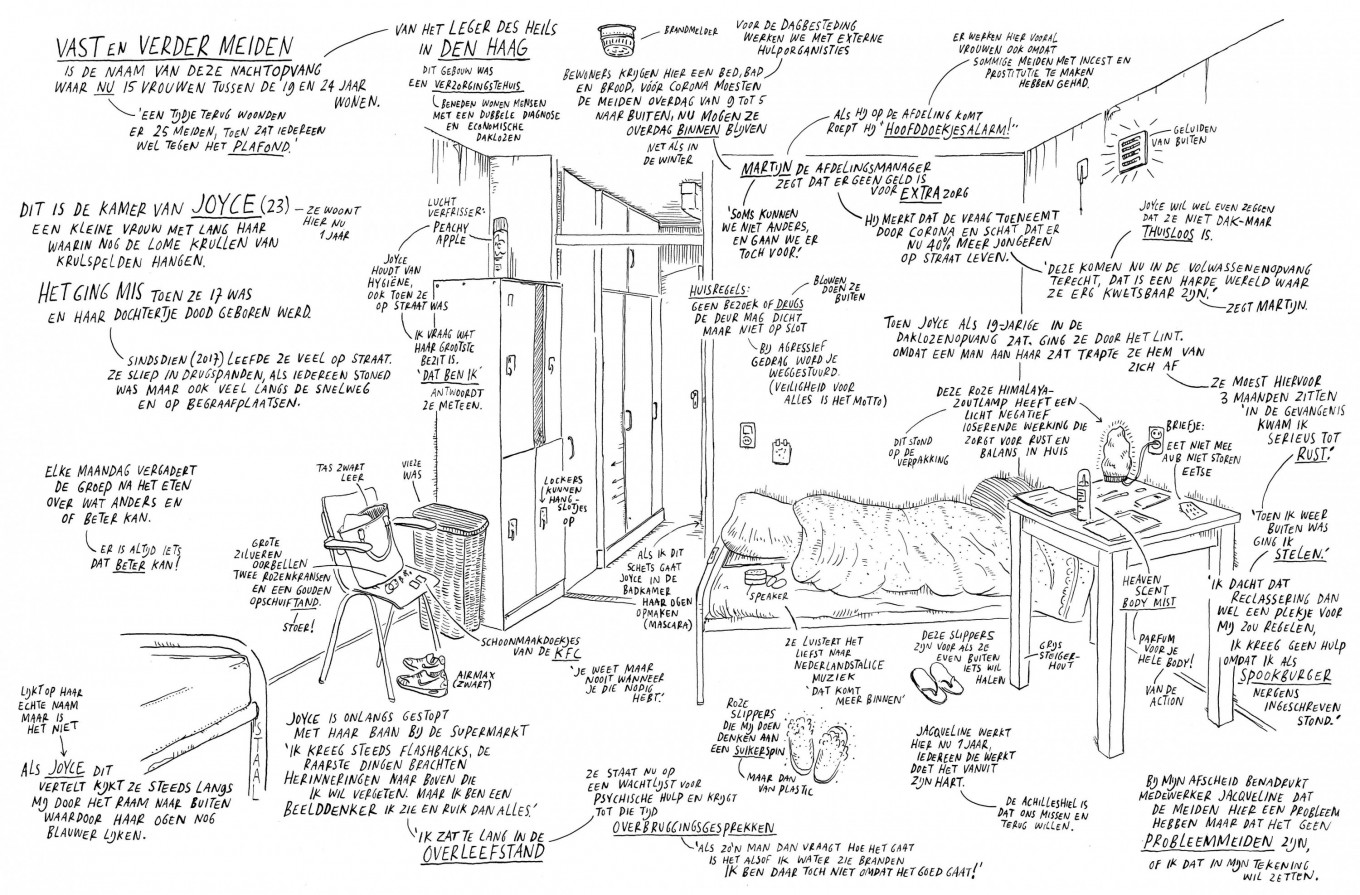 VAST EN VERDER MEIDEN
IS DE NAAM VAN DEZE NACHTOPVANG
WAAR NU 15 VROUWEN TUSSEN DE 19 EN 24 JAAR
WONEN.
'EEN TIJDJE TERUG WOONDEN
ER 25 MEIDEN, TOEN ZAT IEDEREEN
WEL TEGEN HET PLAFOND.'
VAN HET LEGER DES HEILS
IN DEN HAAG
DIT GEBOUW WAS
EEN VERZORGINGSTEHUIS
BENEDEN WONEN MENSEN
MET EEN DUBBELE DIAGNOSE
EN ECONOMISCHE
DAKLOZEN
BRANDMELDER
VOOR DE DAGBESTEDING
WERKEN WE MET EXTERNE
HULPORGANISTIES
BEWONERS KRIJGEN HIER EEN BED, BAD
EN BROOD, VÓÓR CORONA MOESTEN
DE MEIDEN OVERDAG VAN 9 TOT 5
NAAR BUITEN, NU MOGEN ZE
OVERDAG BINNEN BLIJVEN
NET ALS IN
DE WINTER
ER WERKEN HIER VOORAL
VROUWEN OOK OMDAT
SOMMIGE MEIDEN MET INCEST EN
PROSTITUTIE TE MAKEN
HEBBEN GEHAD.
ALS HIJ OP DE AFDELING KOMT
ROEPT HIJ "HOOFDDOEKJESALARM!"
GELUIDEN
VAN BUITEN
MARTIJN DE AFDELINGSMANAGER
ZEGT DAT ER GEEN GELD IS
VOOR EXTRA ZORG
'SOMS KUNNEN
WE NIET ANDERS,
EN GAAN WE ER
TOCH VOOR.'
HIJ MERKT DAT DE VRAAG TOENEEMT
DOOR CORONA EN SCHAT DAT ER
NU 40% MEER JONGEREN
OP STRAAT LEVEN.
JOYCE WIL WEL EVEN ZEGGEN
DAT ZE NIET DAK-MAAR
THUISLOOS IS.
'DEZE KOMEN NU IN DE VOLWASSENENOPVANG
TERECHT, DAT IS EEN HARDE WERELD WAAR
ZE ERG KWETSBAAR ZIJN.'
ZEGT MARTIJN.
DIT IS DE KAMER VAN JOYCE (23)
ZE WOONT
HIER NU
1 JAAR
EEN KLEINE VROUW MET LANG HAAR
WAARIN NOG DE LOME KRULLEN VAN
KRULSPELDEN HANGEN.
HET GING MIS TOEN ZE 17 WAS
EN HAAR DOCHTERTJE DOOD GEBOREN WERD.
SINDSDIEN (2017) LEEFDE ZE VEEL OP STRAAT.
ZE SLIEP IN DRUGSPANDEN, ALS IEDEREEN STONED
WAS MAAR OOK VEEL LANGS DE SNELWEG
EN OP BEGRAAFPLAATSEN.
LUCHT
VERFRISSER:
PEACHY
APPLE
JOYCE
HOUDT VAN
HYGIËNE,
OOK TOEN ZE
OP STRAAT WAS
IK VRAAG WAT
HAAR GROOTSTE
BEZIT IS.
'DAT BEN IK'
ANTWOORDT
ZE METEEN.
HUISREGELS:
GEEN BEZOEK OF DRUGS
DE DEUR MAG DICHT
MAAR NIET OP SLOT
BLOWEN
DOEN ZE
BUITEN
BIJ AGRESSIEF
GEDRAG WORD JE
WEGGESTUURD.
(VEILIGHEID VOOR
ALLES IS HET MOTTO)
TOEN JOYCE ALS 19-JARIGE IN DE
DAKLOZENOPVANG ZAT. GING ZE DOOR HET LINT.
OMDAT EEN MAN AAN HAAR ZAT TRAPTE ZE HEM VAN
ZICH AF
ZE MOEST HIERVOOR
3 MAANDEN ZITTEN
'IN DE GEVANGENIS
KWAM IK
SERIEUS TOT
RUST.'
DEZE ROZE HIMALAYA-
ZOUTLAMP HEEFT EEN
LICHT NEGATIEF
IOSERENDE WERKING DIE
ZORGT VOOR RUST EN
BALANS IN HUIS
DIT STOND
OP DE
VERPAKKING
BRIEFJE:
EET NIET MEE
AUB NIET STOREN
EETSE
'TOEN IK WEER
BUITEN WAS
GING IK
STELEN.'
'IK DACHT DAT
RECLASSERING DAN
WEL EEN PLEKJE VOOR
MIJ ZOU REGELEN,
IK KREEG GEEN HULP
OMDAT IK ALS
SPOOKBURGER
NERGENS
INGESCHREVEN
STOND."
ELKE MAANDAG VERGADERT
DE GROEP NA HET ETEN
OVER WAT ANDERS EN
OF BETER KAN.
ER IS ALTIJD IETS
DAT BETER KAN!
TAS ZWART
LEER
VIEZE
WAS
LOCKERS
KUNNEN
HANG-
SLOTJES
OP
GROTE
ZILVEREN
OORBELLEN
TWEE ROZENKRANSEN
EN EEN GOUDEN
OPSCHUIFTAND.
STOER!
SCHOONMAAKDOEKJES
VAN DE KFC
'JE WEET MAAR
NOOIT WANNEER
JE DIE NODIG
HEBT.'
AIRMAX
(ZWART)
ALS IK DIT
SCHETS GAAT
JOYCE IN DE
BADKAMER
HAAR OGEN
OPMAKEN
(MASCARA)
SPEAKER
ZE LUISTERT HET
LIEFST NAAR
NEDERLANDSTALIGE
MUZIEK
'DAT KOMT
MEER BINNEN'
DEZE SLIPPERS
ZIJN VOOR ALS ZE
EVEN BUITEN
IETS WIL
HALEN
GRIJS
STEIGER-
HOUT
HEAVEN
SCENT
BODY MIST
PARFUM
VOOR JE
HELE BODY!
VAN DE
ACTION
LIJKT OP HAAR
ECHTE NAAM
MAAR IS
HET NIET
STAAL
ALS JOYCE DIT
VERTELT KIJKT ZE STEEDS LANGS
MIJ DOOR HET RAAM NAAR BUITEN
WAARDOOR HAAR OGEN NOG
BLAUWER LIJKEN.
JOYCE IS ONLANGS GESTOPT
MET HAAR BAAN BIJ DE SUPERMARKT
'IK KREEG STEEDS FLASHBACKS, DE
RAARSTE DINGEN BRACHTEN
HERINNERINGEN NAAR BOVEN DIE
IK WIL VERGETEN. MAAR IK BEN EEN
BEELDDENKER IK ZIE EN RUIK DAN ALLES.'
'IK ZAT TE LANG IN DE
OVERLEEFSTAND
ZE STAAT NU OP
EEN WACHTLIJST VOOR
PSYCHISCHE HULP EN KRIJGT
TOT DIE TIJD
OVERBRUGGINGSGESPREKKEN
'ALS ZO'N MAN DAN VRAAGT HOE HET GAAT
IS HET ALSOF IK WATER ZIE BRANDEN
IK BEN DAAR TOCH NIET OMDAT HET GOED GAAT!'
ROZE
SLIPPERS
DIE MIJ DOEN
DENKEN AAN
EEN SUIKERSPIN
MAAR DAN
VAN PLASTIC
JACQUELINE WERKT
HIER NU 1 JAAR,
IEDEREEN DIE WERKT
DOET HET VANUIT
ZIJN HART.
DE ACHILLESHIEL IS
DAT ONS MISSEN EN
TERUG WILLEN.
BIJ MIJN AFSCHEID BENADRUKT
MEDEWERKER JACQUELINE DAT
DE MEIDEN HIER EEN PROBLEEM
HEBBEN MAAR DAT HET GEEN
PROBLEEMMEIDEN ZIJN,
OF IK DAT IN MIJN TEKENING
WIL ZETTEN.